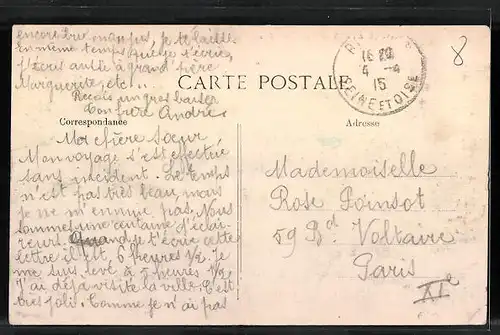 encore trop mangés, je te laisse
En même temps que je t'écris,
j'écris aussi à grand'père
Marguerite, etc...
Reçois un gros baiser
Ton frère André
CARTE POSTALE
Correspondance
Adresse
Ma chère Sœur
Mon voyage s'est effectué
sans incident. Le temps
n'est pas très beau, mais
je ne m'ennuye pas. Nous
sommes une centaine d'éclai-
reurs. Quand je t'écris cette
lettre il est 6 heures ½. Je
me suis levé à 5 heures ½
J'ai déjà visité la ville. C'est
très joli. Comme je n'ai pas
Mademoiselle
Rose Poinsot
59 Bd. Voltaire
Paris
XIe
16 20
4 - 4
15
SEINE ET OISE
8